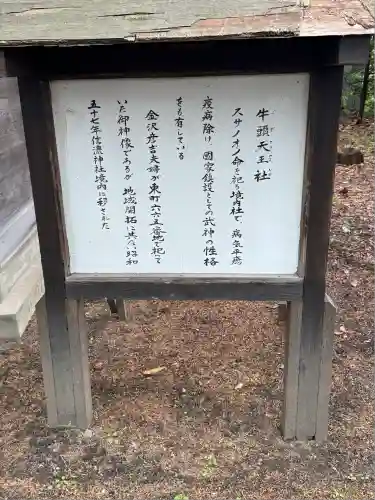 牛頭天王社
スサノオノ命を祀る境内社で、病気平癒
疫病除け・国家鎮護としての武神の性格
をも有している
金沢彦吉夫婦が東町六六五番地で祀って
いた御神像であるが、地域開拓に共ない昭和
五十七年信流神社境内に移された